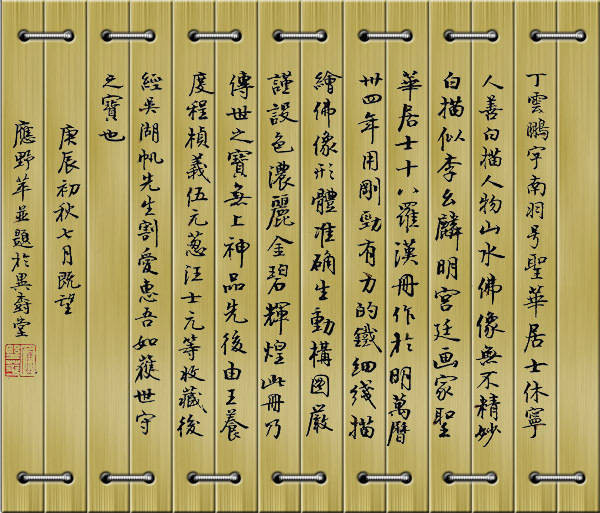 丁雲鵬字南羽号聖華居士休寧
人善白描人物山水佛像無不精妙
白描似李公麟明宮廷画家聖
華居士十八羅漢冊作於明萬曆
卅四年用剛勁有力的鐵細线描
繪佛像形體准确生動構图嚴
謹設色濃麗金碧輝煌此冊乃
傳世之寶無上神品先後由王養
度程楨義伍元蕙汪士元等收藏後
經吳湖帆先生割愛惠吾如獲世守
之寶也
庚辰初秋七月既望
應野苹並題於異壽堂